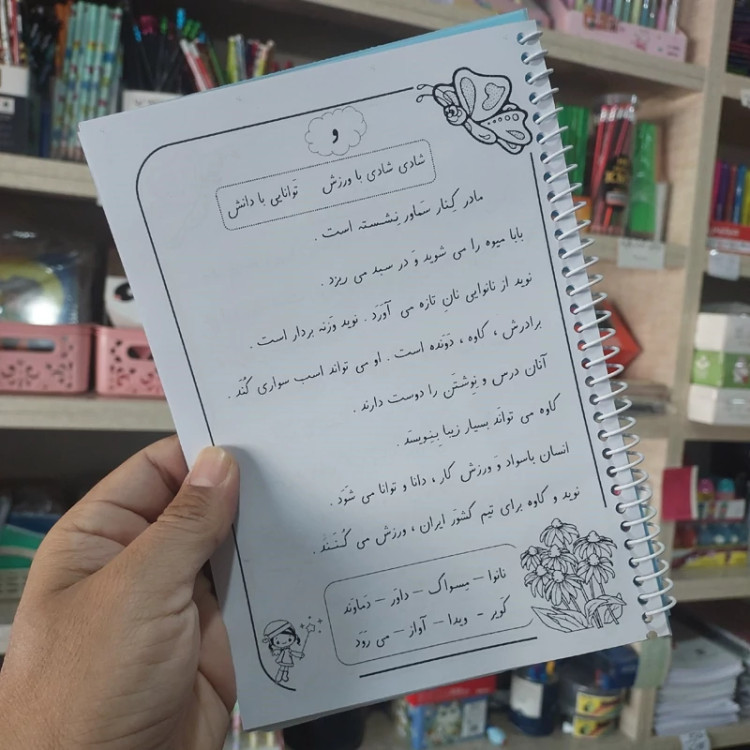 و
شادی شادی با ورزش توانایی با دانش
مادر کِنار سَماوَر نِشَسته است .
بابا میوه را می شوید وَ در سبد می ریزد .
نوید از نانوایی نانِ تازه می آوَرَد . نوید وَزنه بردار است .
برادرش ، کاوه ، دَوَنده است . او می تواند اسب سواری کُنَد .
آنان درس و نِوِشتَن را دوست دارند .
کاوه می تواند بسیار زیبا بِنِویسَد .
انسان باسواد وَ ورزش کار ، دانا و توانا می شَوَد .
نوید و کاوه برای تیم کشوَر ایران ، ورزش می کُنَند .
نانوا – مِسواک – داوَر – دَماوَند
کَویر – ویدا – آواز – می رَوَد